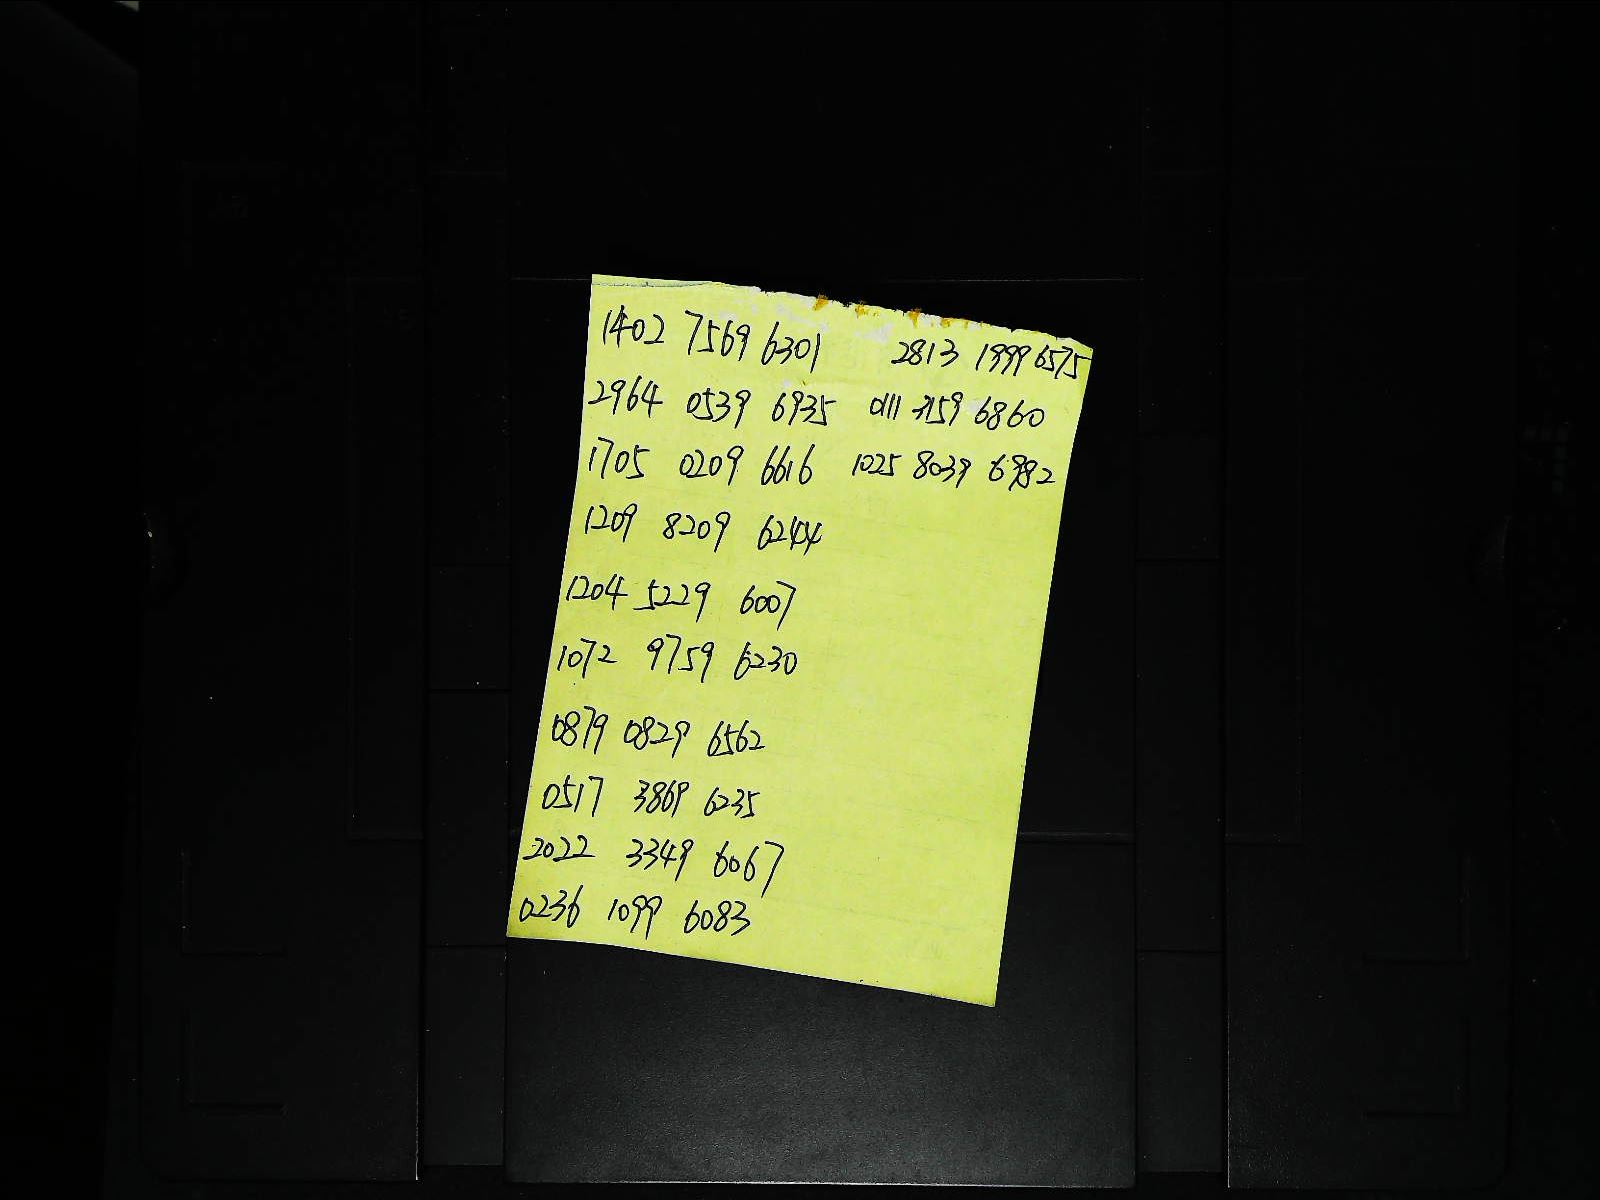 1402 7569 6301 2813 1999 6575
2964 0539 6935 0111 7159 6860
1705 0209 6616 1025 8039 6982
1209 8209 6244
1204 5229 6007
1072 9759 6230
0879 0829 6562
0517 3869 6235
2022 3349 6067
0236 1099 6083